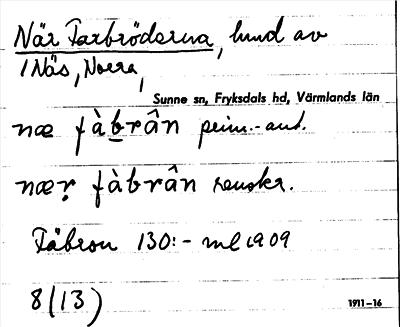 När Farbröderna, hmd av
1 Näs, Norra,
Sunne sn, Fryksdals hd, Värmlands län
næ fàbrân prim.-ant.
nær fàbrân renskr.
Fäbron 130:- ml 1909
8(13)
1911-16